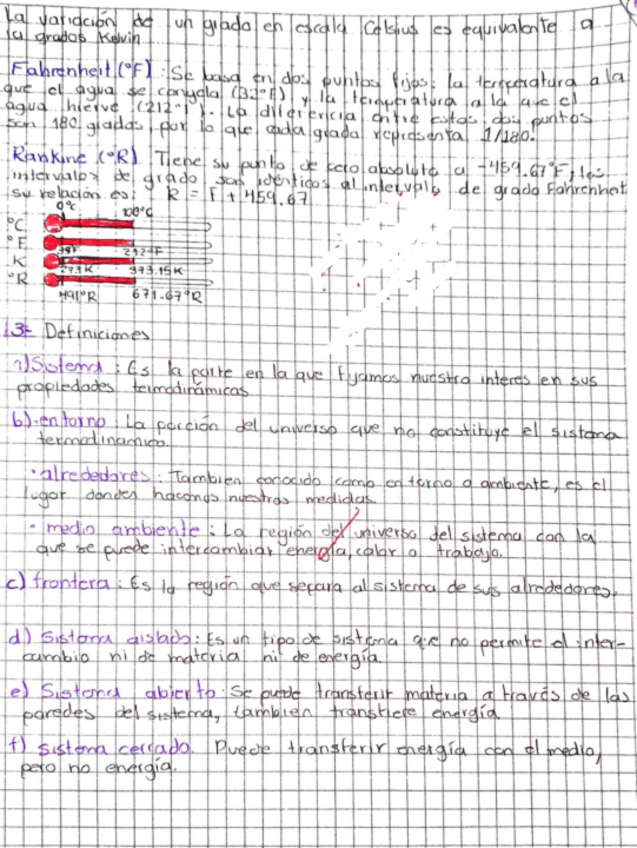 La variación de un grado en escala Celsius es equivalente a
la grados Kelvin
Fahrenheit (°F): Se basa en dos puntos fijos: la temperatura a la
que el agua se congela (32°F) y la temperatura a la que el
agua hierve (212°F). La diferencia entre estos dos puntos
son 180 grados, por lo que cada grado representa 1/180.
Rankine (°R) Tiene su punto de cero absoluto a -459.67°F, los
intervalos de grado son identicos al intervalo de grado Fahrenheit
su relación es: R = F + 459.67
0°C 100°C
°C
°F
212°F
K
273K 373.15K
°R
491°R 671.67°R
3- Definiciones
a) Sistema: Es la parte en la que fijamos nuestro interes en sus
propiedades termodinámicas
b). entorno: La porción del universo que no constituye el sistema
termodinamico.
· alrededores: Tambien conocido como entorno o ambiente, es el
lugar donden hacemos nuestras medidas.
- medio ambiente: La región del universo del sistema con la
que se puede intercambiar energía, calor o trabajo.
c) frontera: Es la región que separa al sistema de sus alrededores.
d) Sistema aislado: Es un tipo de sistema que no permite el inter-
cambio ni de materia ni de energía.
e) Sistema abierto: Se puede transferir materia a través de las
paredes del sistema, tambien transfiere energía
f) sistema cerrado. Puede transferir energía con el medio,
pero no energía.